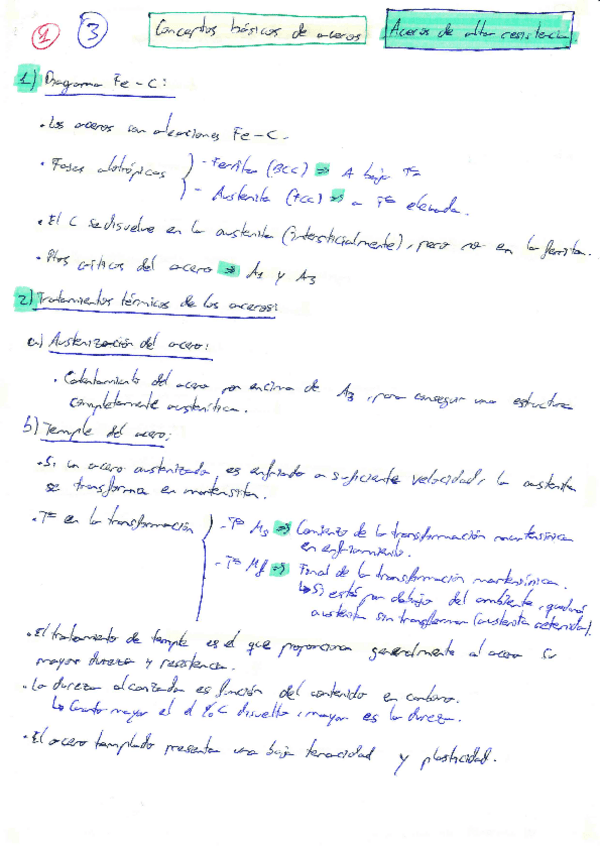 1 3 Conceptos básicos de aceros Aceros de alta resistencia
1) Diagrama Fe-C:
• Los aceros son aleaciones Fe-C.
• Fases alotrópicas
- Ferrita (BCC) ⇒ A baja Tª
- Austenita (FCC) ⇒ a Tª elevada.
• El C se disuelve en la austenita (intersticialmente), pero no en la ferrita.
• Ptos críticos del acero ⇒ A1 y A3
2) Tratamientos térmicos de los aceros:
a) Austenización del acero:
• Calentamiento del acero por encima de A3, para conseguir una estructura
completamente austenítica.
b) Temple del acero:
• Si un acero austenizado es enfriado a suficiente velocidad, la austenita
se transforma en martensita.
• Tª en la transformación
- Tª Ms ⇒ Comienzo de la transformación martensítica
en enfriamiento.
- Tª Mf ⇒ Final de la transformación martensítica.
↳ Si está por debajo del ambiente, quedará
austenita sin transformar (austenita retenida).
• El tratamiento de temple es el que proporciona generalmente al acero su
mayor dureza y resistencia.
• La dureza alcanzada es función del contenido en carbono.
↳ Cuanto mayor el %C disuelto, mayor es la dureza.
• El acero templado presenta una baja tenacidad y plasticidad.